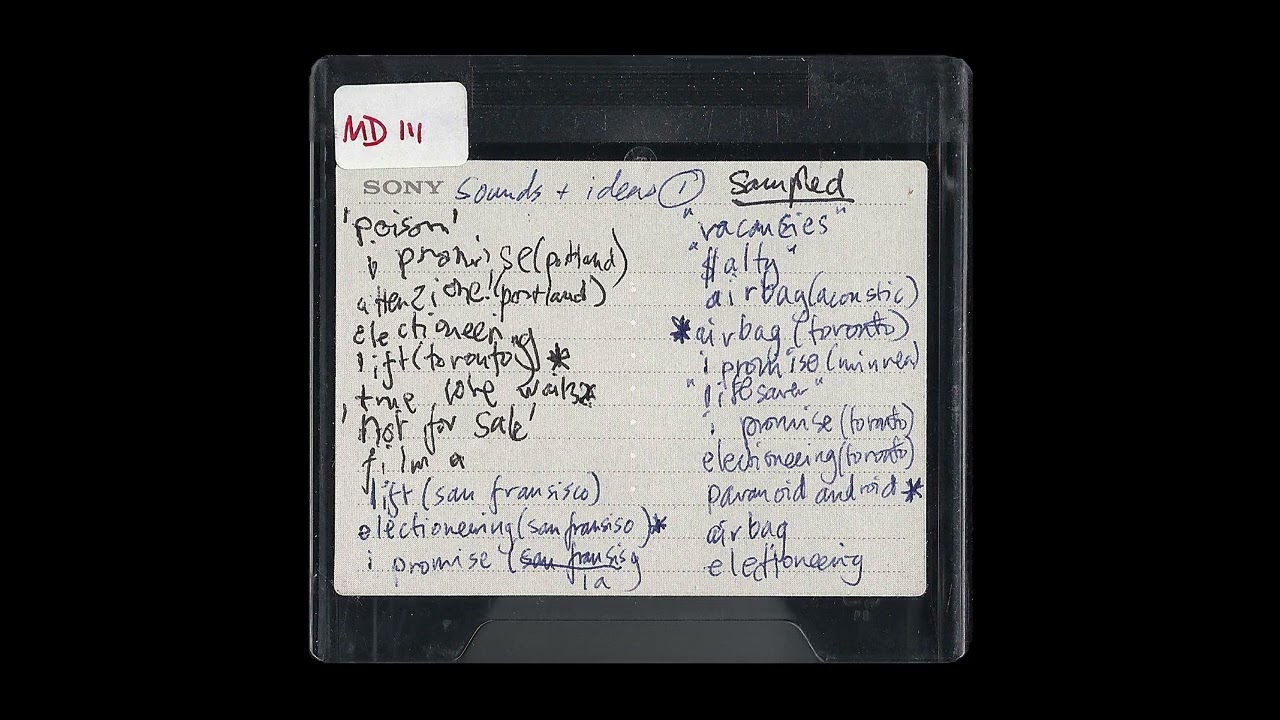 MD 111
SONY sounds + ideas ① sampled
'poison'
i promise (portland)
attenzione! (portland)
electioneering
lift (toronto) *
true love waits *
'Not for Sale'
film a
lift (san fransisco)
electioneering (san fransiso) *
i promise (san fransisco)
la
"vacancies"
airbag (acoustic)
* airbag (toronto)
i promise
"lifesaver"
i promise (toronto)
electioneering (toronto)
paranoid android *
airbag
electioneering